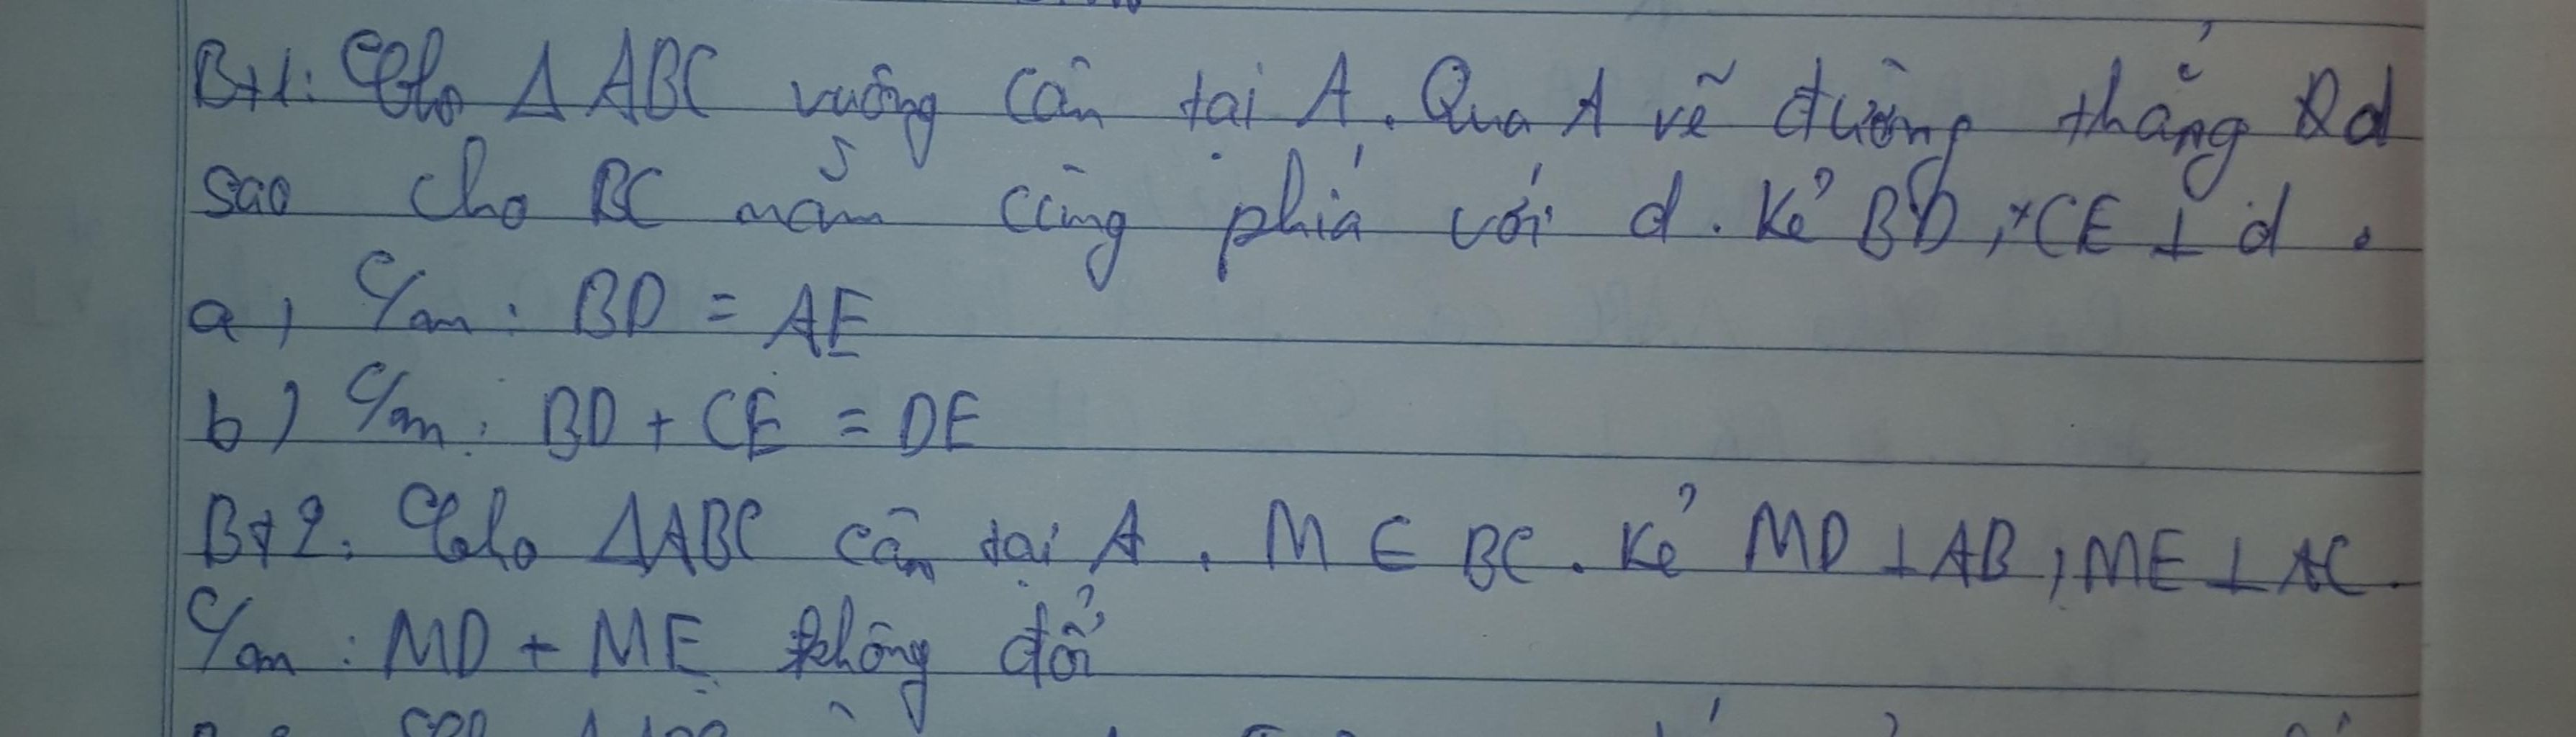 Bt1: Cho Δ ABC vuông cân tại A. Qua A vẽ đường thẳng d
sao cho BC nằm cùng phía với d. Kẻ BD, CE ⊥ d.
a) C/m: BD = AE
b) C/m: BD + CE = DE
Bt2: Cho ΔABC cân tại A. M ∈ BC. Kẻ MD ⊥ AB, ME ⊥ AC.
C/m: MD + ME không đổi